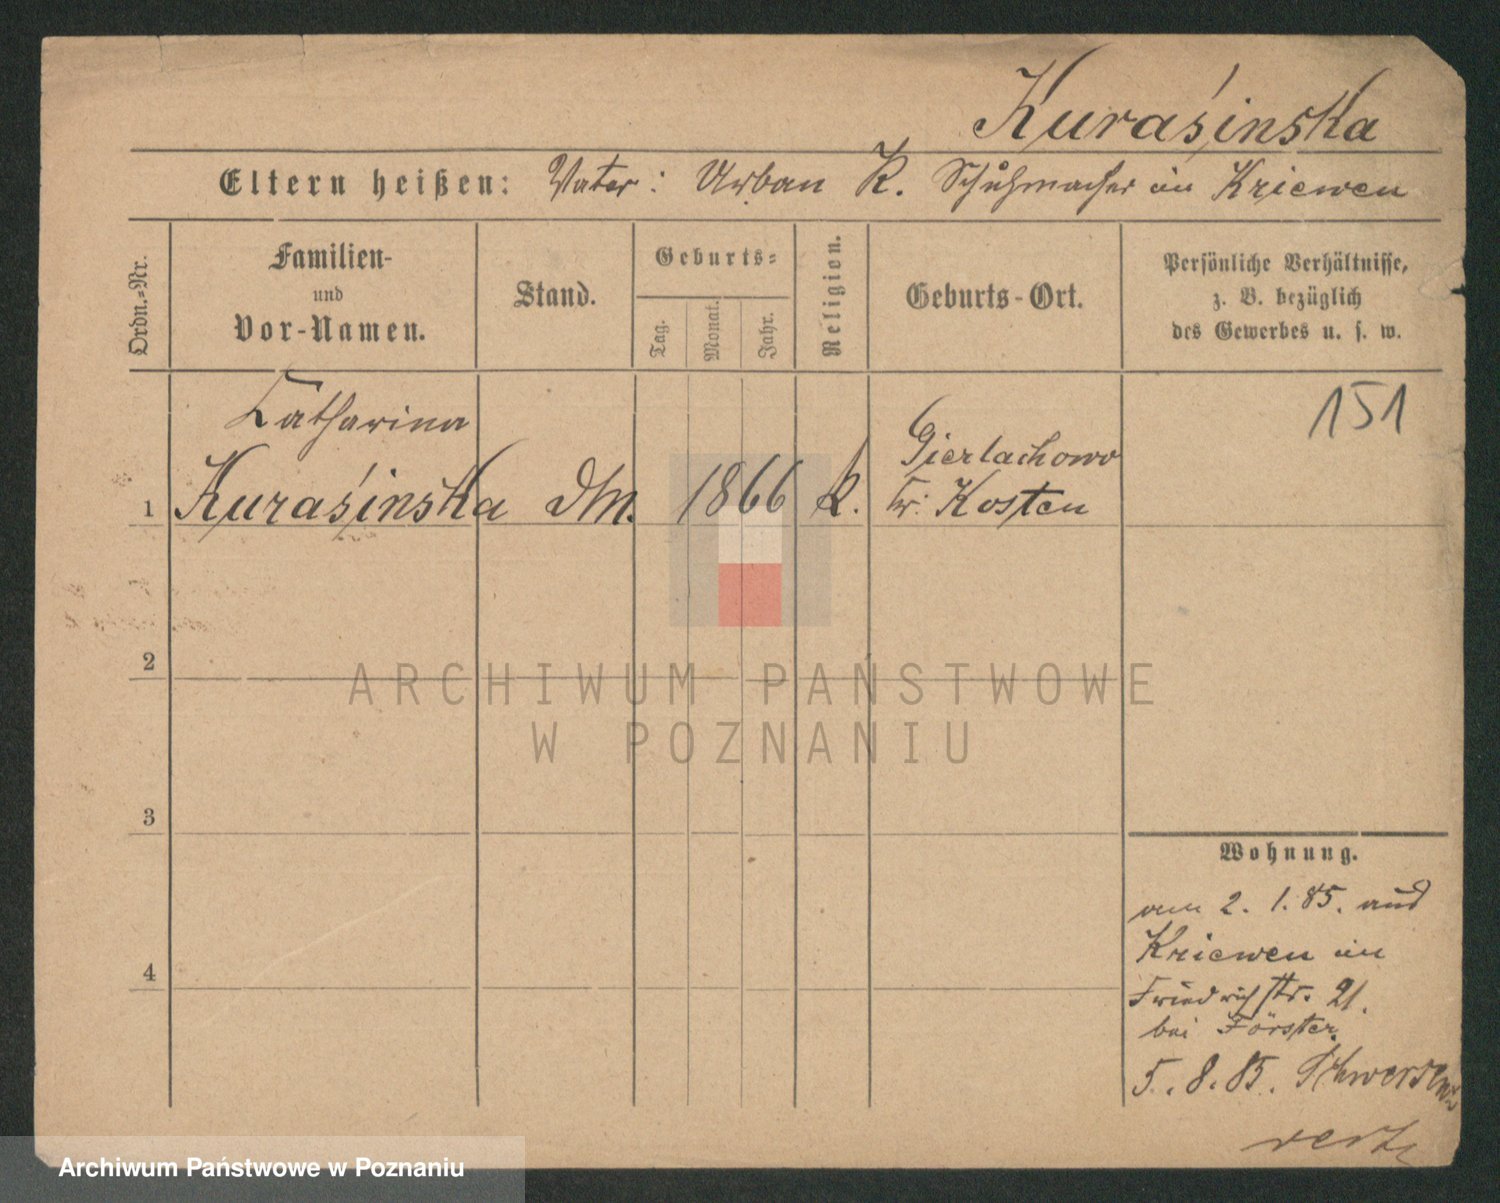 Kuraśinska
Eltern heißen: Vater: Urban K. Schuhmacher in Kriewen
Ordn.-Nr.
Familien-
und
Vor-Namen.
Stand.
Geburts-
Tag.
Monat.
Jahr.
Religion.
Geburts-Ort.
Persönliche Verhältnisse,
z. B. bezüglich
des Gewerbes u. s. w.
151
Catharina
1 Kuraśinska Dm. 1866 K. Gierlachowo
Kr: Kosten
2
ARCHIWUM PAŃSTWOWE
W POZNANIU
3
4
Wohnung.
am 2. 1. 85. aus
Kriewen in
Friedrichstr. 21.
bei Förster.
5. 8. 85. Schwersenz
verte
Archiwum Państwowe w Poznaniu